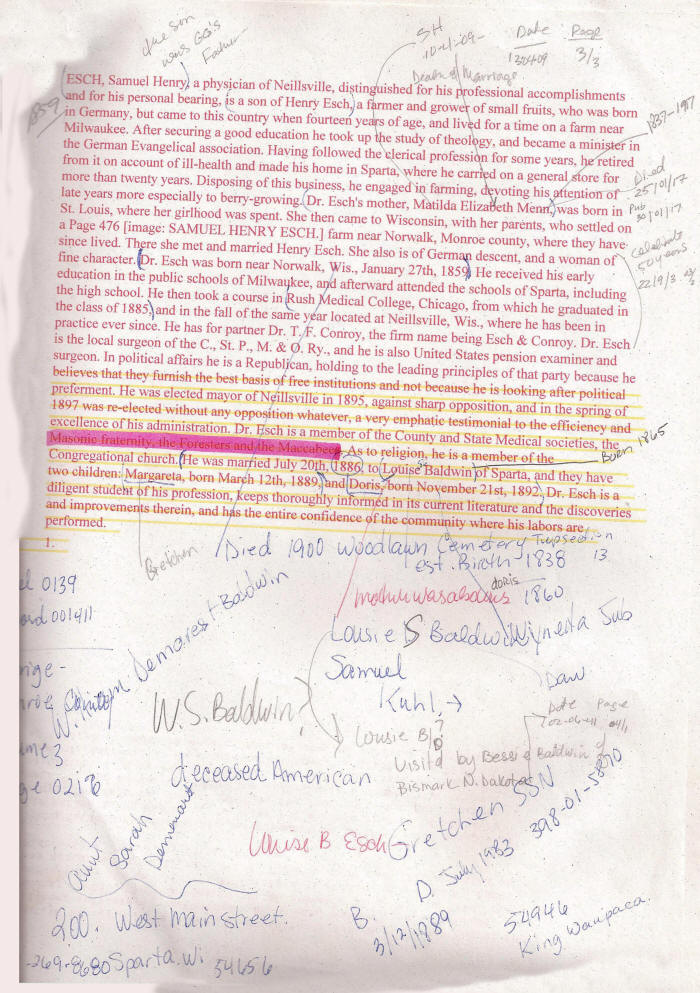 the son
was GG's
Father
SH
10-21-09-
Date Page
130409 3/3
Death of Marriage
1859
ESCH, Samuel Henry, a physician of Neillsville, distinguished for his professional accomplishments
and for his personal bearing, is a son of Henry Esch, a farmer and grower of small fruits, who was born
in Germany, but came to this country when fourteen years of age, and lived for a time on a farm near
Milwaukee. After securing a good education he took up the study of theology, and became a minister in
the German Evangelical association. Having followed the clerical profession for some years, he retired
from it on account of ill-health and made his home in Sparta, where he carried on a general store for
more than twenty years. Disposing of this business, he engaged in farming, devoting his attention of
late years more especially to berry-growing. Dr. Esch's mother, Matilda Elizabeth Menn, was born in
St. Louis, where her girlhood was spent. She then came to Wisconsin, with her parents, who settled on
a Page 476 [image: SAMUEL HENRY ESCH.] farm near Norwalk, Monroe county, where they have
since lived. There she met and married Henry Esch. She also is of German descent, and a woman of
fine character. Dr. Esch was born near Norwalk, Wis., January 27th, 1859. He received his early
education in the public schools of Milwaukee, and afterward attended the schools of Sparta, including
the high school. He then took a course in Rush Medical College, Chicago, from which he graduated in
the class of 1885, and in the fall of the same year located at Neillsville, Wis., where he has been in
practice ever since. He has for partner Dr. T. F. Conroy, the firm name being Esch & Conroy. Dr. Esch
is the local surgeon of the C., St. P., M. & O. Ry., and he is also United States pension examiner and
surgeon. In political affairs he is a Republican, holding to the leading principles of that party because he
believes that they furnish the best basis of free institutions and not because he is looking after political
preferment. He was elected mayor of Neillsville in 1895, against sharp opposition, and in the spring of
1897 was re-elected without any opposition whatever, a very emphatic testimonial to the efficiency and
excellence of his administration. Dr. Esch is a member of the County and State Medical societies, the
Masonic fraternity, the Foresters and the Maccabees. As to religion, he is a member of the
Congregational church. He was married July 20th, 1886, to Louise Baldwin of Sparta, and they have
two children: Margareta, born March 12th, 1889, and Doris, born November 21st, 1892. Dr. Esch is a
diligent student of his profession, keeps thoroughly informed in its current literature and the discoveries
and improvements therein, and has the entire confidence of the community where his labors are
performed.
1.
1837-1917
Died
25/01/17
Pub
30/01/17
celebrate
50 years
22/9/3
Born 1865
Gretchen
Died 1900 Woodlawn Cemetery
est. Birth 1838 13
0139
001411
doris
1860
Lousie B Baldwin
Samuel
Kuhl
Daw
W.S. Baldwin
Demorest Baldwin
Date Page
02-06-11
Lousie B
Visited by Bessie Baldwin of
Bismark N. Dakota
3
02176
deceased American
Louise B Esch
Gretchen SSN
398-01-5890
D. July 1983
Aunt
Sarah
B.
3/12/1889
54946
King Waupaca.
200. West Main street.
-269-8680 Sparta. Wi 54656